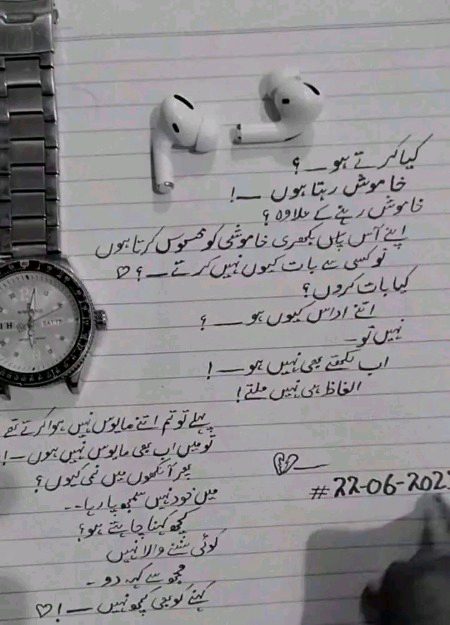 کیا کرتے ہو ــ ؟
خاموش رہتا ہوں ــ !
خاموش رہنے کے علاوہ ؟
اپنے آس پاس بکھری خاموشی کو محسوس کرتا ہوں
تو کسی سے بات کیوں نہیں کرتے ــ ؟ ♡
کیا بات کروں ؟
اتنے اداس کیوں ہو ــ ؟
نہیں تو ــ
اب لکھتے بھی نہیں ہو ــ !
الفاظ ہی نہیں ملتے !
پہلے تو تم اتنے مایوس نہیں ہوا کرتے تھے
تو میں اب بھی مایوس نہیں ہوں ــ !
پھر آنکھوں میں نمی کیوں ؟
میں خود نہیں سمجھ پا رہا ــ
کچھ کہنا چاہتے ہو ؟
کوئی سننے والا نہیں
مجھ سے کہہ دو ــ
کہنے کو بھی کچھ نہیں ــ ! ♡
#22-06-2023